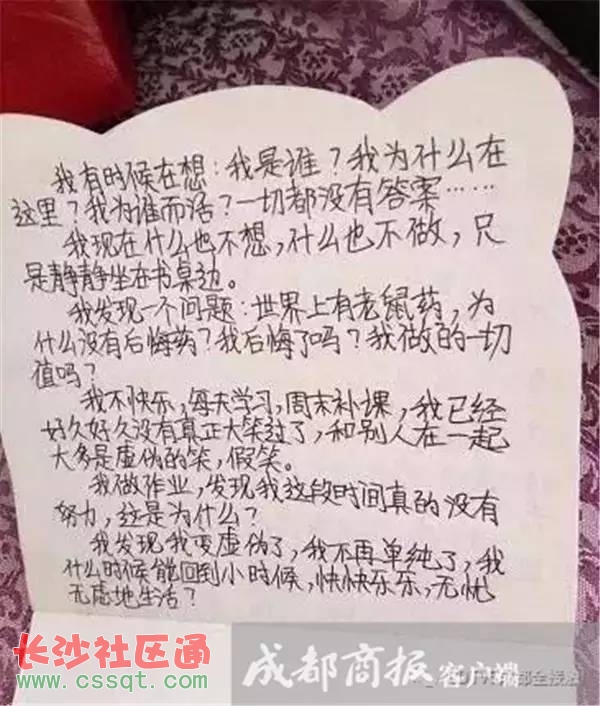 我有时候在想：我是谁？我为什么在
这里？我为谁而活？一切都没有答案……
我现在什么也不想，什么也不做，只
是静静坐在书桌边。
我发现一个问题：世界上有老鼠药，为
什么没有后悔药？我后悔了吗？我做的一切
值吗？
我不快乐，每天学习，周末补课，我已经
好久好久没有真正大笑过了，和别人在一起
大多是虚伪的笑，假笑。
我做作业，发现我这段时间真的没有
努力，这是为什么？
我发现我变虚伪了，我不再单纯了，我
什么时候能回到小时候，快快乐乐，无忧
无虑地生活？
长沙社区通
www.cssqt.com
成都商报客户端
全接触